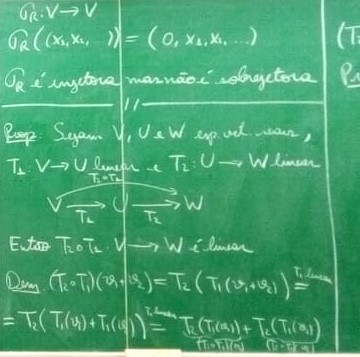 σ_R: V → V
σ_R((x₁, x₂, ...)) = (0, x₁, x₂, ...)
σ_R é injetora mas não é sobrejetora
//
Prop: Sejam V, U e W esp. vet. reais,
T₁: V → U linear e T₂: U → W linear
T₂∘T₁
V →T₁ U →T₂ W
Então T₂∘T₁: V → W é linear
Dem. (T₂∘T₁)(v₁+v₂) = T₂(T₁(v₁+v₂)) = T₁ linear
= T₂(T₁(v₁)+T₁(v₂)) = T₂ linear T₂(T₁(v₁)) + T₂(T₁(v₂))
(T₂∘T₁)(v₁)
(T₂